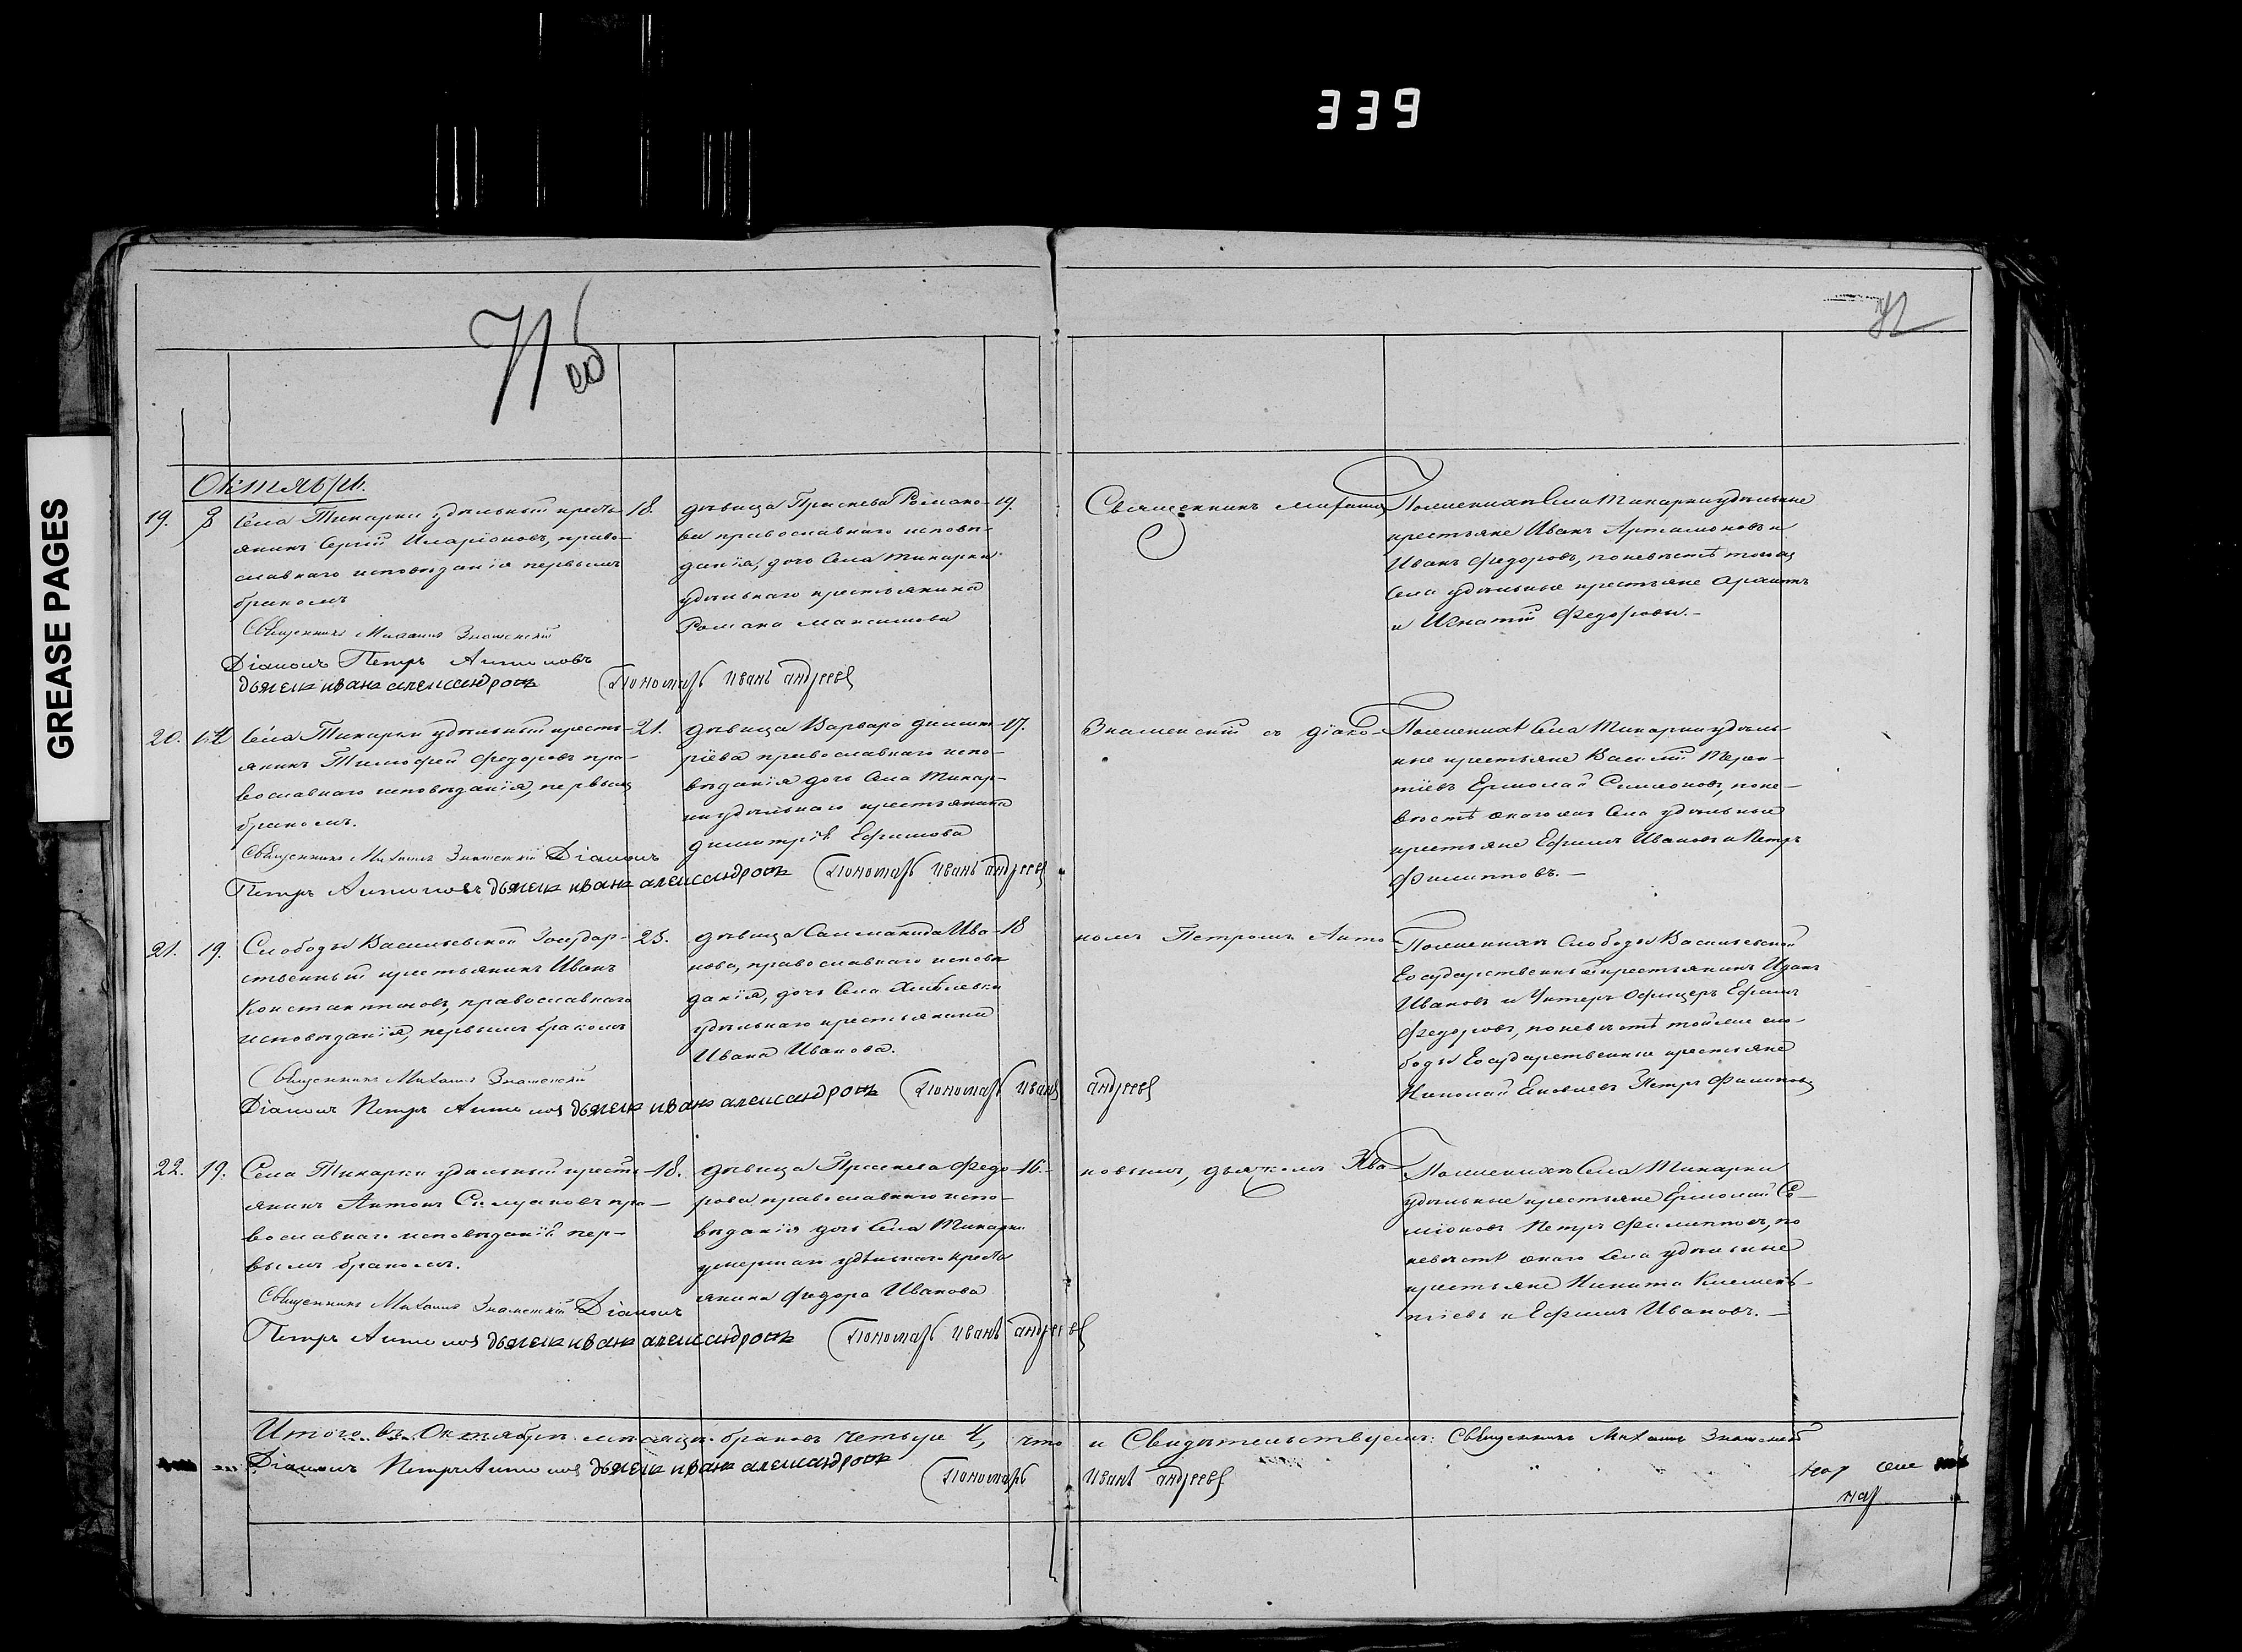 339
GREASE PAGES
71 об
72
Октября.
19. 8 Села Тикарки удѣльный кресть- 18. дѣвица Праскева Романо- 19.
янинъ Сергій Иларіоновъ, право-
славнаго исповѣданія первымъ
бракомъ
ва православнаго исповѣ-
данія, дочь Села Тикарки
удѣльнаго крестьянина
Романа Максимова
Священникъ Михаилъ
Поженихѣ Села Тикарки удѣльные
крестьяне Иванъ Артамоновъ и
Иванъ Федоровъ, поневѣстѣ тогожъ
Села удѣльные крестьяне
и Игнатій Федоровы.-
Священникъ Михаилъ Знаменскій
Діаконъ Петръ Антоновъ
дьячекъ иванъ александровъ Пономарь Иванъ андреевъ
20. 12 Села Тикарки удѣльный кресть- 21. дѣвица Варвара Димит- 17.
янинъ Тимофей Федоровъ пра-
вославнаго исповѣданія, первымъ
бракомъ.
ріева православнаго испо-
вѣданія дочь Села Тикар-
ки удѣльнаго крестьянина
Димитрія Ефимова
Знаменскій съ діако-
Поженихѣ Села Тикарки удѣль-
ные крестьяне Василій Терен-
тіевъ Ермолай Симеоновъ, поне-
вѣстѣ онагожъ Села удѣльные
крестьяне Ефимъ Ивановъ и Петръ
Филипповъ.-
Священникъ Михаилъ Знаменскій Діаконъ
Петръ Антоновъ дьячекъ иванъ александровъ Пономарь Иванъ андреевъ
21. 19. Слободы Васильевской Государ- 23. дѣвица Саламанида Ива- 18
ственный крестьянинъ Иванъ
Константиновъ, православнаго
исповѣданія, первымъ бракомъ
нова, православнаго исповѣ
данія, дочь Села
удѣльнаго крестьянина
Ивана Иванова.
номъ Петромъ Анто
Поженихѣ Слободы Васильевской
Государственный крестьянинъ
Ивановъ и Унтеръ Офицеръ Ефимъ
Федоровъ, поневѣстѣ тойже сло-
боды Государственные крестьяне
Николай Яковлевъ Петръ Филиповъ
Священникъ Михаилъ Знаменскій
Діаконъ Петръ Антоновъ дьячекъ иванъ александровъ Пономарь Иванъ андреевъ
22. 19. Села Тикарки удѣльный кресть- 18. дѣвица Праскева Федо- 16.-
янинъ Антонъ пра-
вославнаго исповѣданія пер-
вымъ бракомъ.
рова православнаго испо-
вѣданія дочь Села Тикарки
умершаго удѣльнаго кресть
янина Федора Иванова
новымъ, дьячкомъ Ива-
Поженихѣ Села Тикарки
удѣльные крестьяне Ермолай Се-
міоновъ Петръ Филипповъ, по
невѣстѣ онаго Села удѣльные
крестьяне Никита Клемень-
тіевъ и Ефимъ Ивановъ.-
Священникъ Михаилъ Знаменскій Діаконъ
Петръ Антоновъ дьячекъ иванъ александровъ Пономарь Иванъ андреевъ
Итого въ Октябрѣ мѣсяцѣ браковъ четыре 4, что и Свидѣтельствуемъ: Священникъ Михаилъ Знаменскій
Діаконъ Петръ Антоновъ дьячекъ иванъ александровъ Пономарь Иванъ андреевъ